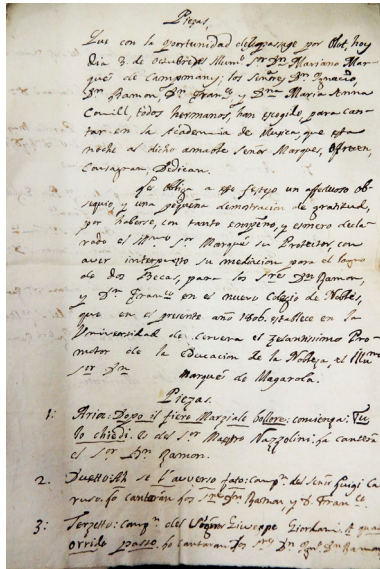 Piezas,
Que con la oportunidad del passage por Olot, hoy
dia 3. de octubre del Illmo. Sor Dn. Mariano Mar-
qués de Campmany; los señores Dn. Ignacio,
Dn Ramon, Dn Franco y Dña Maria Anna
todos hermanos, han escogido, para can-
tar en la Academia de Musica, que esta
noche al dicho amante Señor Marques, Ofrecen,
Consagran, Dedican.
Les obliga a este festejo un afectuoso ob-
sequio, y una pequeña demostracion de gratitud,
por haberse, con tanto empeño, y esmero decla-
rado el Illmo Sor Marqués su Protector, con
aver interpuesto su mediacion para el logro
de dos Becas, para los Sres Dn Ramon,
y Dn Franco en el nuevo Colegio de Nobles,
que en el presente año 1806. establece en la
Universidad de Cervera el zelantissimo Pro-
motor de la Educacion de la Nobleza, el Illmo
Sor Dn Marqués de Magarola.
Piezas.
1: Aria: Dopo il fiero Marziale bollore: comienza: Tu
lo chiedi. es del Sor Maestro Nazzolini: la cantará
el Sor Dn Ramon.
2. Duetto: Ah se l'avverso fato: compn. del Señor Luigi Ca-
ruso. lo cantarán los Sres Dn Ramon y D. Franco.
3: Terzetto: compn. del Señor Giuseppe Giordani. A qual
orrido passo. lo cantarán los Sres Dn Dn Ramon